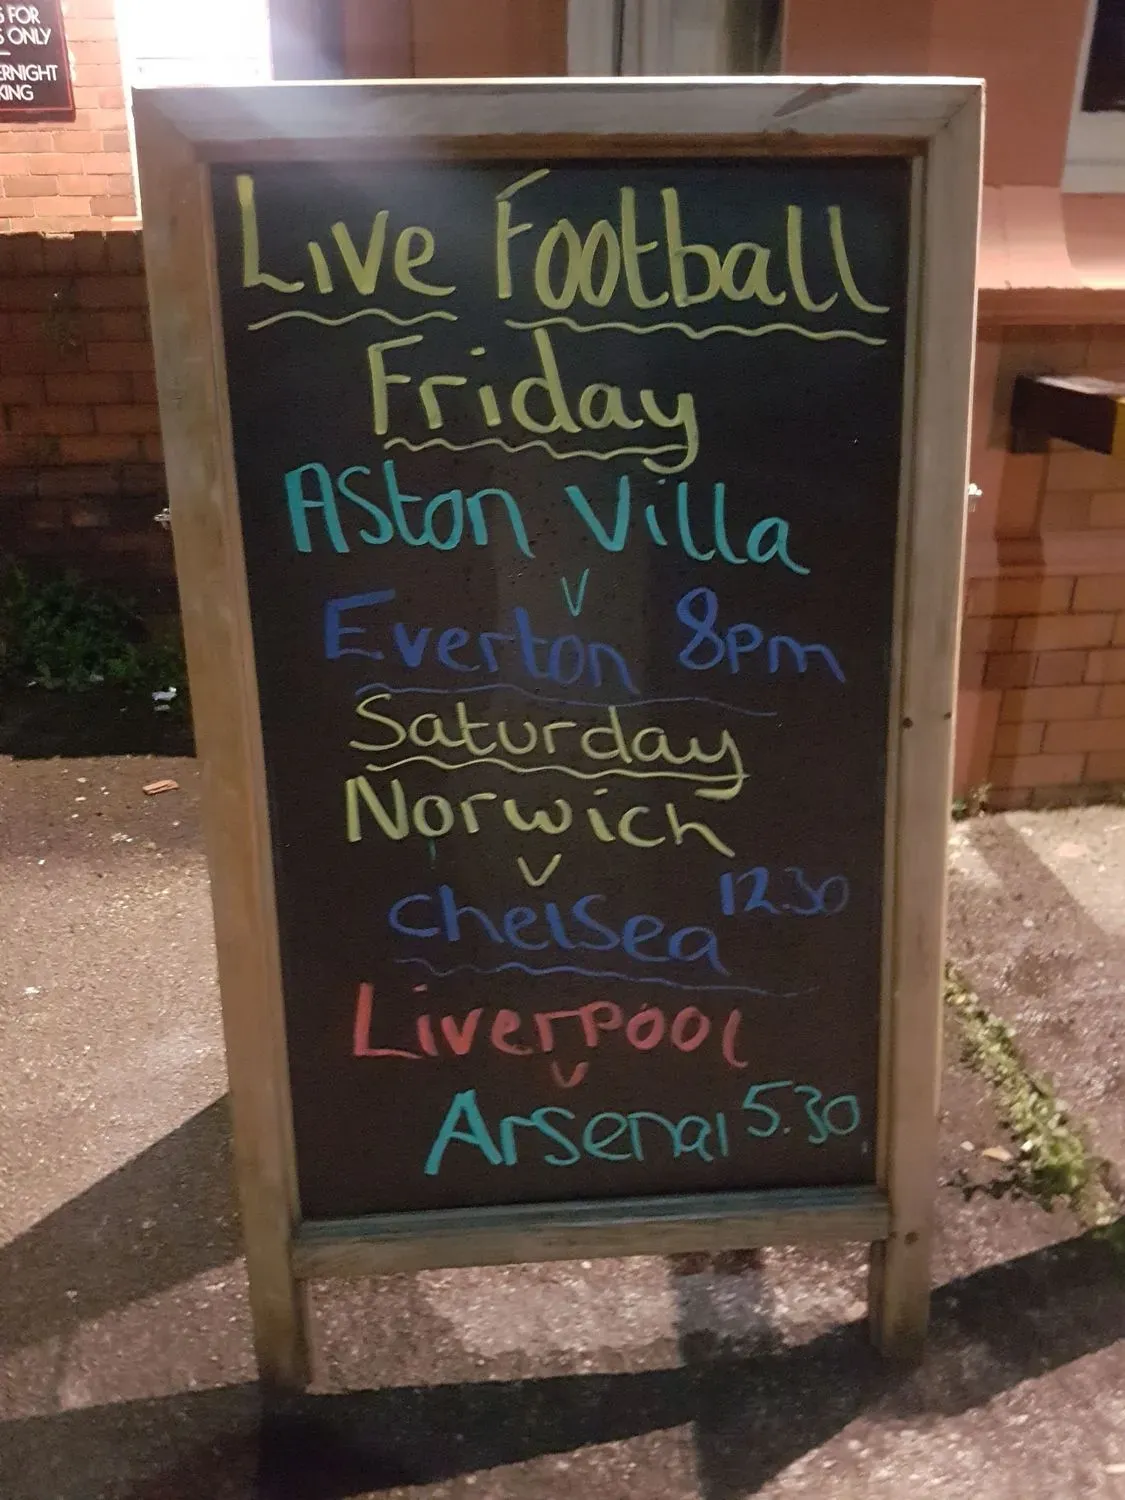 S FOR
S ONLY
ERNIGHT
KING
Live Football
Friday
Aston Villa
v
Everton 8pm
Saturday
Norwich
v
Chelsea 12.30
Liverpool
v
Arsenal 5.30